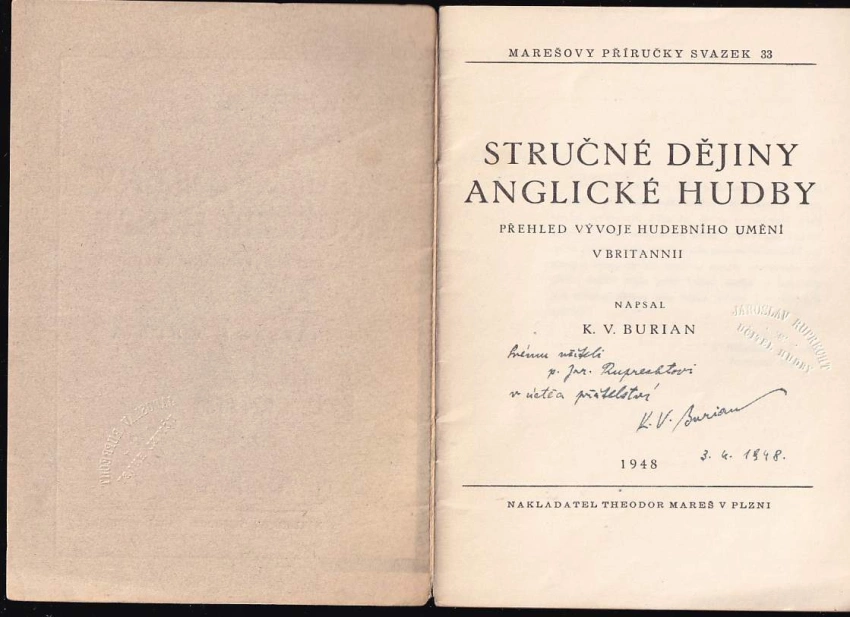 MAREŠOVY PŘÍRUČKY SVAZEK 33
STRUČNÉ DĚJINY
ANGLICKÉ HUDBY
PŘEHLED VÝVOJE HUDEBNÍHO UMĚNÍ
V BRITANNII
NAPSAL
K. V. BURIAN
JAROSLAV RUPRECHT
UČITEL HUDBY
Svému učiteli
p. Jar. Ruprechtovi
v úctě a přátelství
K. V. Burian
1948
3. 4. 1948.
NAKLADATEL THEODOR MAREŠ V PLZNI